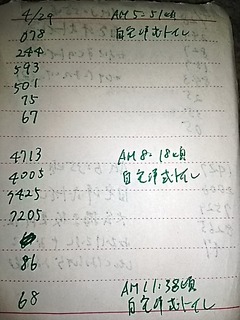 4/29 AM 5:51頃
078 自宅洋式トイレ
244
593
501
75
67
4713 AM 8:18頃
4005 自宅洋式トイレ
9425
7205
86
AM 11:38頃
68 自宅洋式トイレ